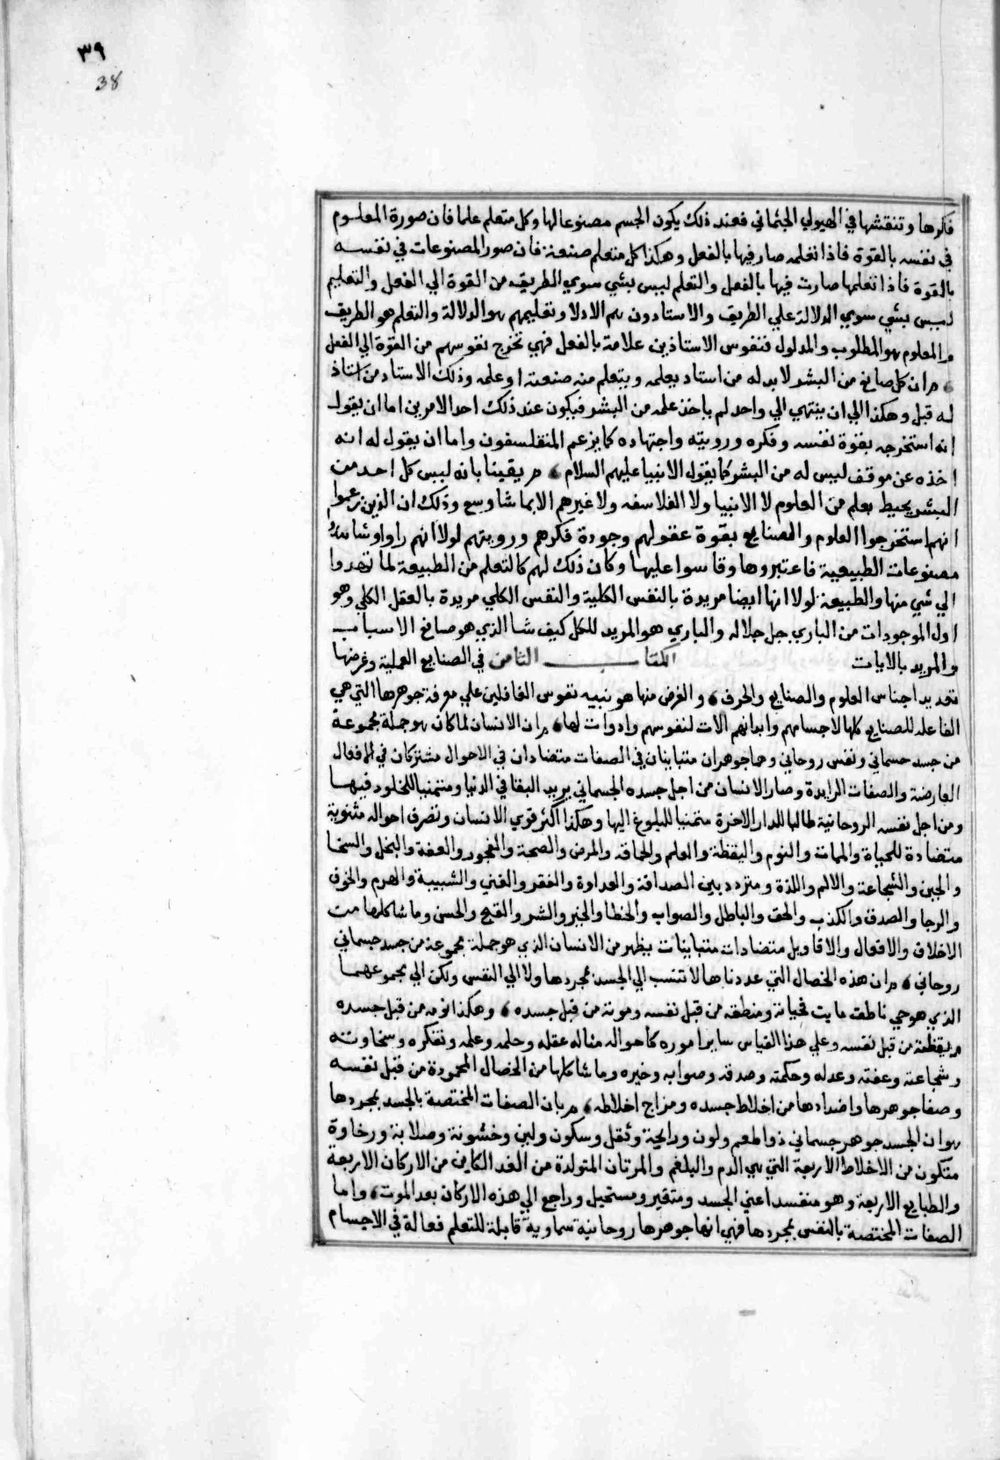 ٣٩
38
فكرها وتنقشها في الهيولي الجثماني فعند ذلك يكون الجسم مصنوعا لها وكل متعلم علما فان صورة المعلوم
في نفسه بالقوة فاذا تعلمه صار فيها بالفعل وهكذا كل متعلم صنعة فان صور المصنوعات في نفسه
بالقوة فاذا تعلمها صارت فيها بالفعل والتعلم ليس بشي سوي الطريق من القوة الي الفعل والتعليم
ليس بشي سوي الدلالة علي الطريق والاستادون هم الادلا وتعليمهم هو الدلالة والتعلم هو الطريق
والمعلوم هو المطلوب والمدلول فنفوس الاستاذين علامة بالفعل فهي تخرج نفوسهم من القوة الي الفعل
ان كل صانع من البشر لا بد له من استاد يعلمه ويتعلم منه صنعته او علمه وذلك الاستاد من استاذ
له قبل وهكذا الي ان ينتهي الي واحد لم ياخذ علمه من البشر فيكون عند ذلك احد الامرين اما ان يقول
انه استخرجه بقوة نفسه وفكره ورويته واجتهاده كما يزعم المتفلسفون واما ان يقول له انه
اخذه عن موقف ليس له من البشر كما يقول الانبيا عليهم السلام يقينا بانه ليس كل احد من
البشر يحيط بعلم من العلوم لا الانبيا ولا الفلاسفه ولا غيرهم الا بما شا وسع وذلك ان الذين زعموا
انهم استخرجوا العلوم والصنايع بقوة عقولهم وجودة فكرهم ورويتهم لولا انهم راوا وشاهدوا
مصنوعات الطبيعية فاعتبروها وقاسوا عليها وكان ذلك لهم كالتعلم من الطبيعة لما تهدوا
الي شي منها والطبيعة لولا انها ايضا مريدة بالنفس الكلية والنفس الكلي مريدة بالعقل الكلي وهو
اول الموجودات من الباري جل جلاله والباري هو المريد للكل كيف شا الذي هو صانع الاسباب
والمريد بالايات الكتاب الثامن في الصنايع العملية وغرضها
تعديد اجناس العلوم والصنايع والحرف والغرض منها هو تنبيه نفوس الغافلين علي معرفة جوهرها التي هي
الفاعله للصنايع كلها لاجسامهم وابدانهم الات لنفوسهم وادوات لها ان الانسان لما كان هو جملة مجموعة
من جسد جسماني ونفس روحاني وهما جوهران متباينان في الصفات متضادان في الاحوال مشتركان في الافعال
العارضة والصفات الزايدة وصار الانسان من اجل جسده الجسماني يريد البقا في الدنيا ومتمنيا للخلود فيها
ومن اجل نفسه الروحانية طالبا للدار الاخرة متمنيا للبلوغ اليها وهكذا اكثر قوي الانسان وتصرف احواله مثنوية
متضادة للحياة والممات والنوم واليقظة والعلم والحماقه والمرض والصحة والفجور والعفة والبخل والسخا
والجبن والشجاعة والالم واللذة ومتردد بين الصداقة والعداوة والفقر والغني والشبيبة والهرم والخوف
والرجا والصدق والكذب والحق والباطل والصواب والخطا والخير والشر والقبح والحسن وما شاكلها من
الاخلاق والافعال والاقاويل متضادات متباينات يظهر من الانسان الذي هو جملة مجموعة من جسد جسماني
روحاني ان هذه الخصال التي عددناها لا تنسب الي الجسد بمجردها ولا الي النفس ولكن الي مجموعهما
الذي هو حي ناطق مايت فحياته ومنطقه من قبل نفسه وموته من قبل جسده وهكذا نومه من قبل جسده
ويقظته من قبل نفسه وعلي هذا القياس ساير اموره كاحواله مثاله عقله وحلمه وعلمه وتفكره وسخاوته
وشجاعته وعفته وعدله وحكمته وصدقه وصوابه وخيره وما شاكلها من الخصال المحمودة من قبل نفسه
وصفا جوهرها واضدادها من اخلاط جسده ومزاج اخلاطه بان الصفات المختصة بالجسد بمجردها
هو ان الجسد جوهر جسماني ذو اطعم ولون ورايحة وثقل وسكون ولين وخشونة وصلابة ورخاوة
متكون من الاخلاط الاربعة التي هي الدم والبلغم والمرتان المتولدة من الغدا الكاين من الاركان الاربعة
والطبايع الاربعة وهو منفسد اعني الجسد ومتغير ومستحيل وراجع الي هذه الاركان بعد الموت واما
الصفات المختصة بالنفس بمجردها فهي انها جوهرها روحانية سماوية قابلة للتعلم فعالة في الاجسام